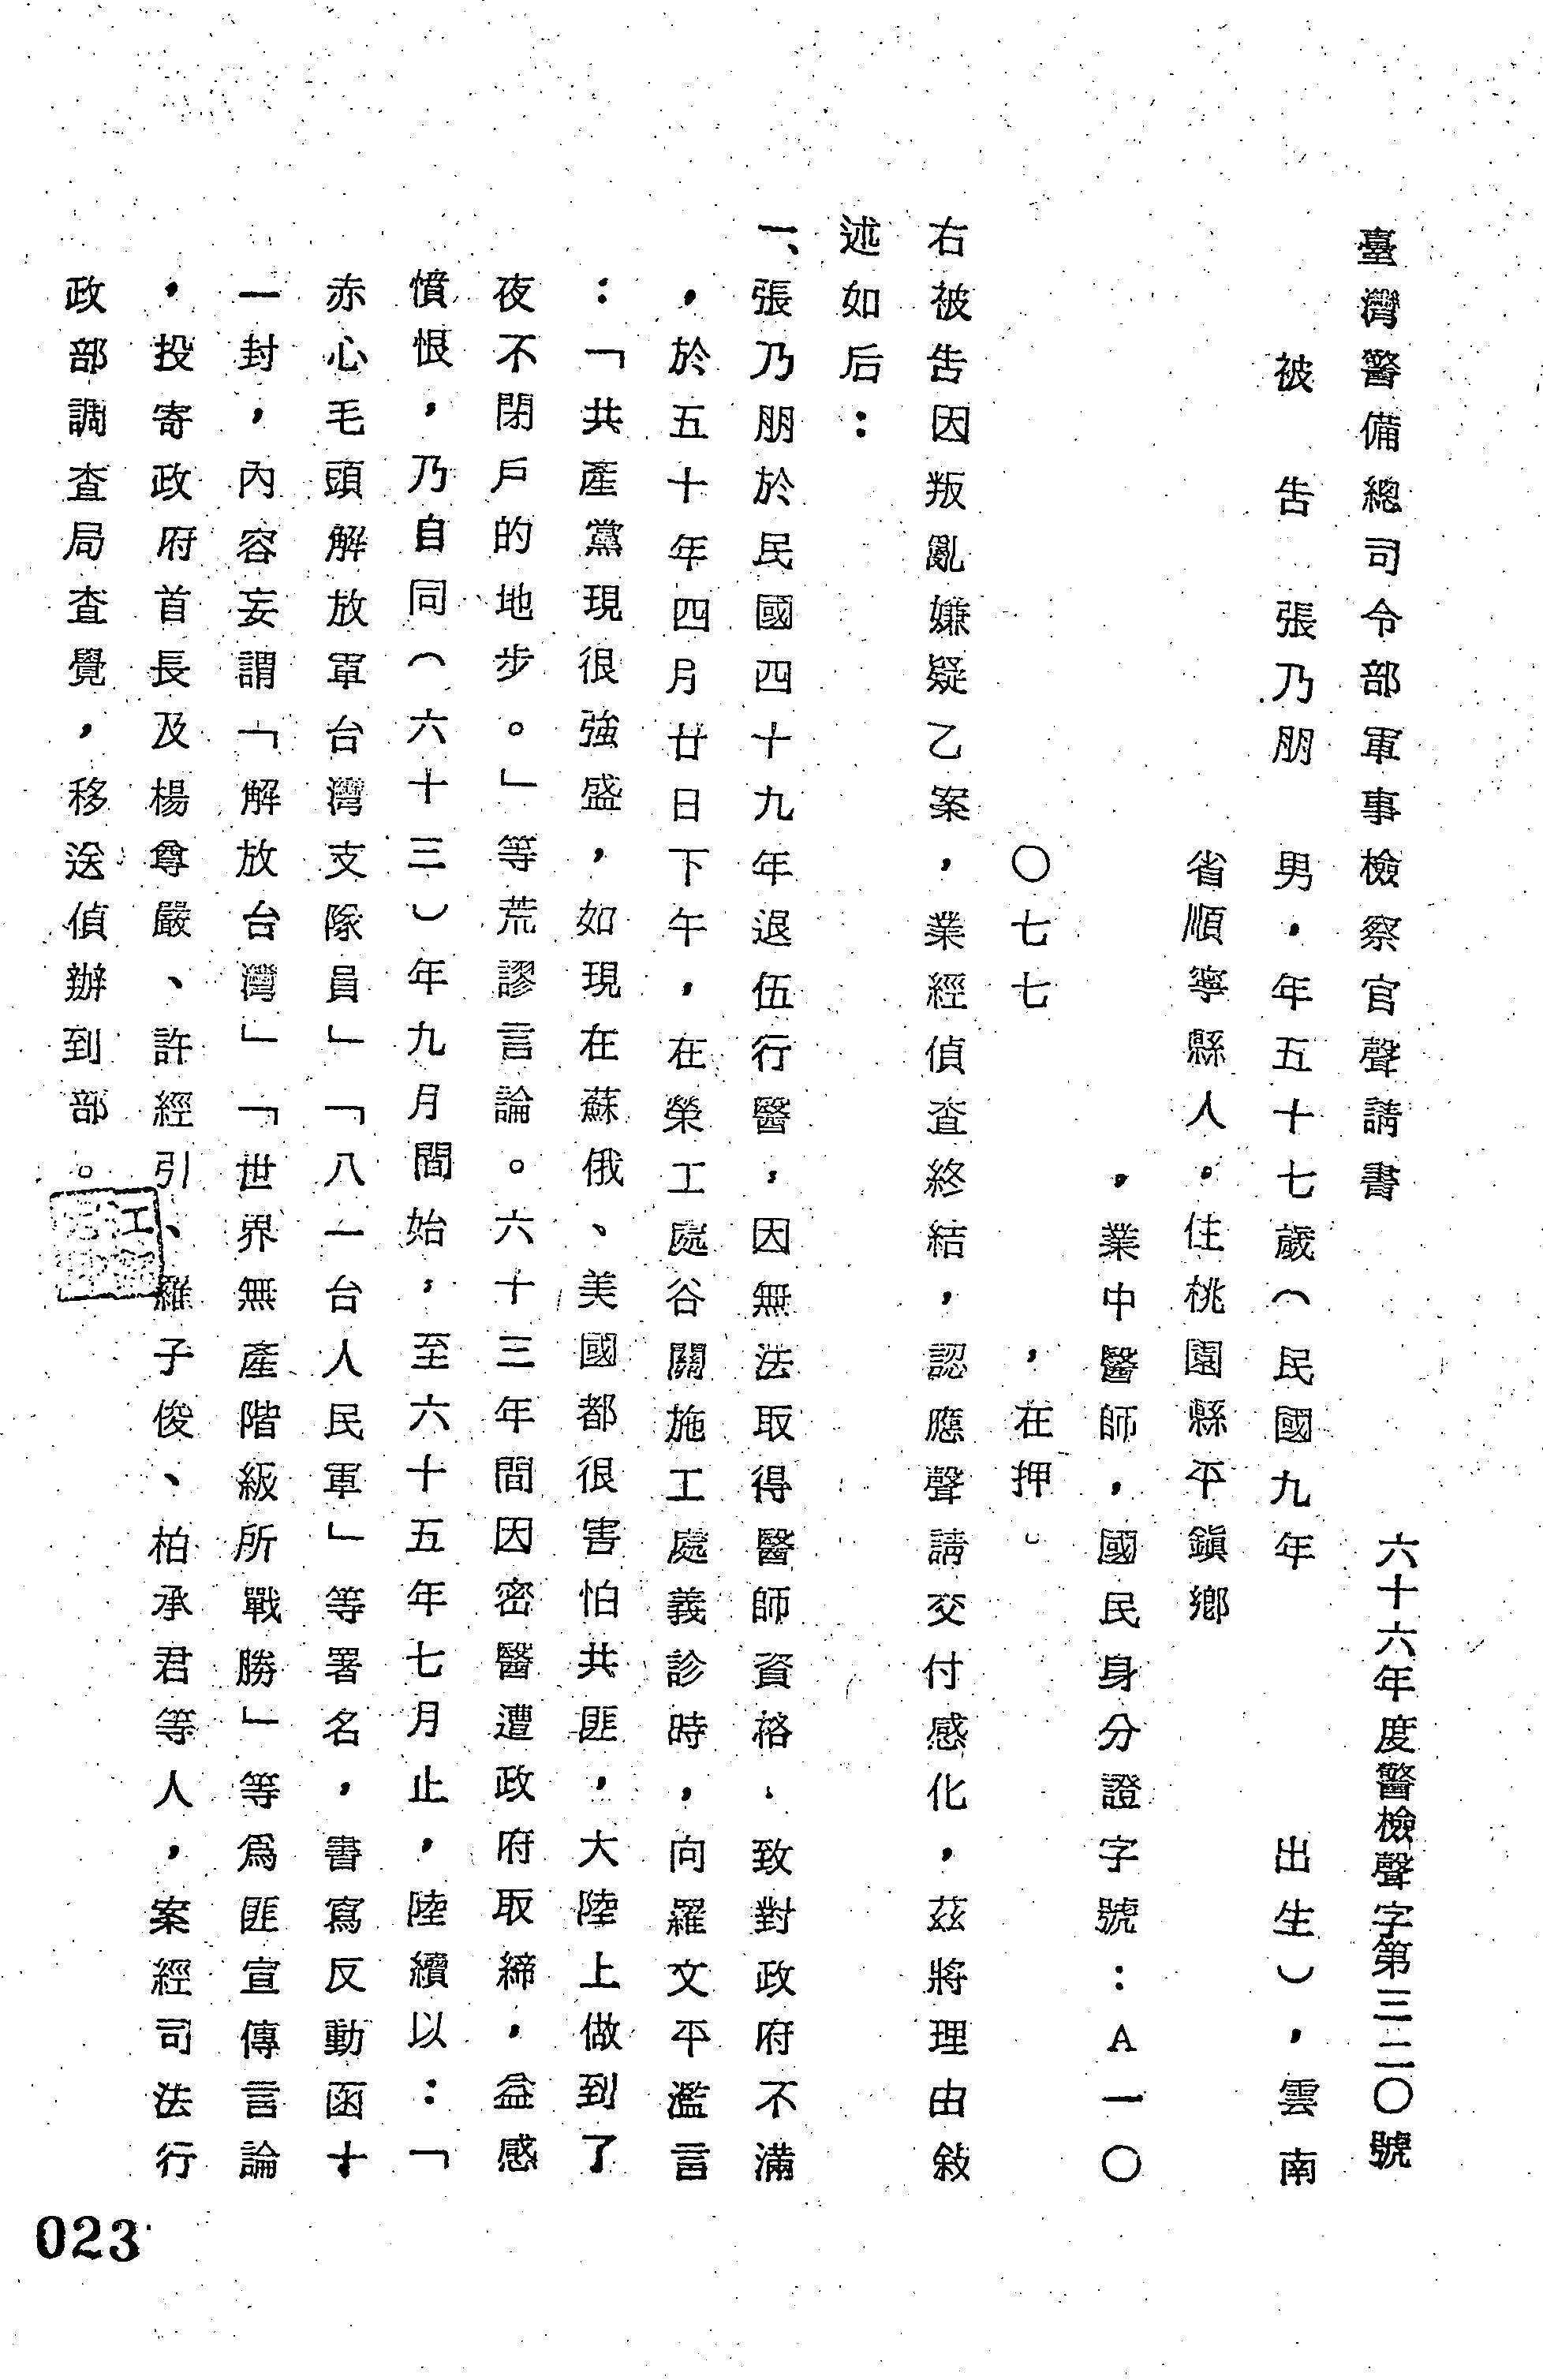 臺灣警備總司令部軍事檢察官聲請書
六十六年度警檢聲字第三二〇號
被告 張乃朋 男，年五十七歲（民國九年 出生），雲南
省順寧縣人。住桃園縣平鎮鄉
，業中醫師，國民身分證字號：A一〇
〇七七 ，在押。
右被告因叛亂嫌疑乙案，業經偵查終結，認應聲請交付感化，茲將理由敍
述如后：
一、張乃朋於民國四十九年退伍行醫，因無法取得醫師資格，致對政府不滿
，於五十年四月廿日下午，在榮工處谷關施工處義診時，向羅文平濫言
：「共產黨現很強盛，如現在蘇俄、美國都很害怕共匪，大陸上做到了
夜不閉戶的地步。」等荒謬言論。六十三年間因密醫遭政府取締，益感
憤恨，乃自同（六十三）年九月間始，至六十五年七月止，陸續以：「
赤心毛頭解放軍台灣支隊員」「八一台人民軍」等署名，書寫反動函十
一封，內容妄謂「解放台灣」「世界無產階級所戰勝」等為匪宣傳言論
，投寄政府首長及楊尊嚴、許經引、羅子俊、柏承君等人，案經司法行
政部調查局查覺，移送偵辦到部。
023